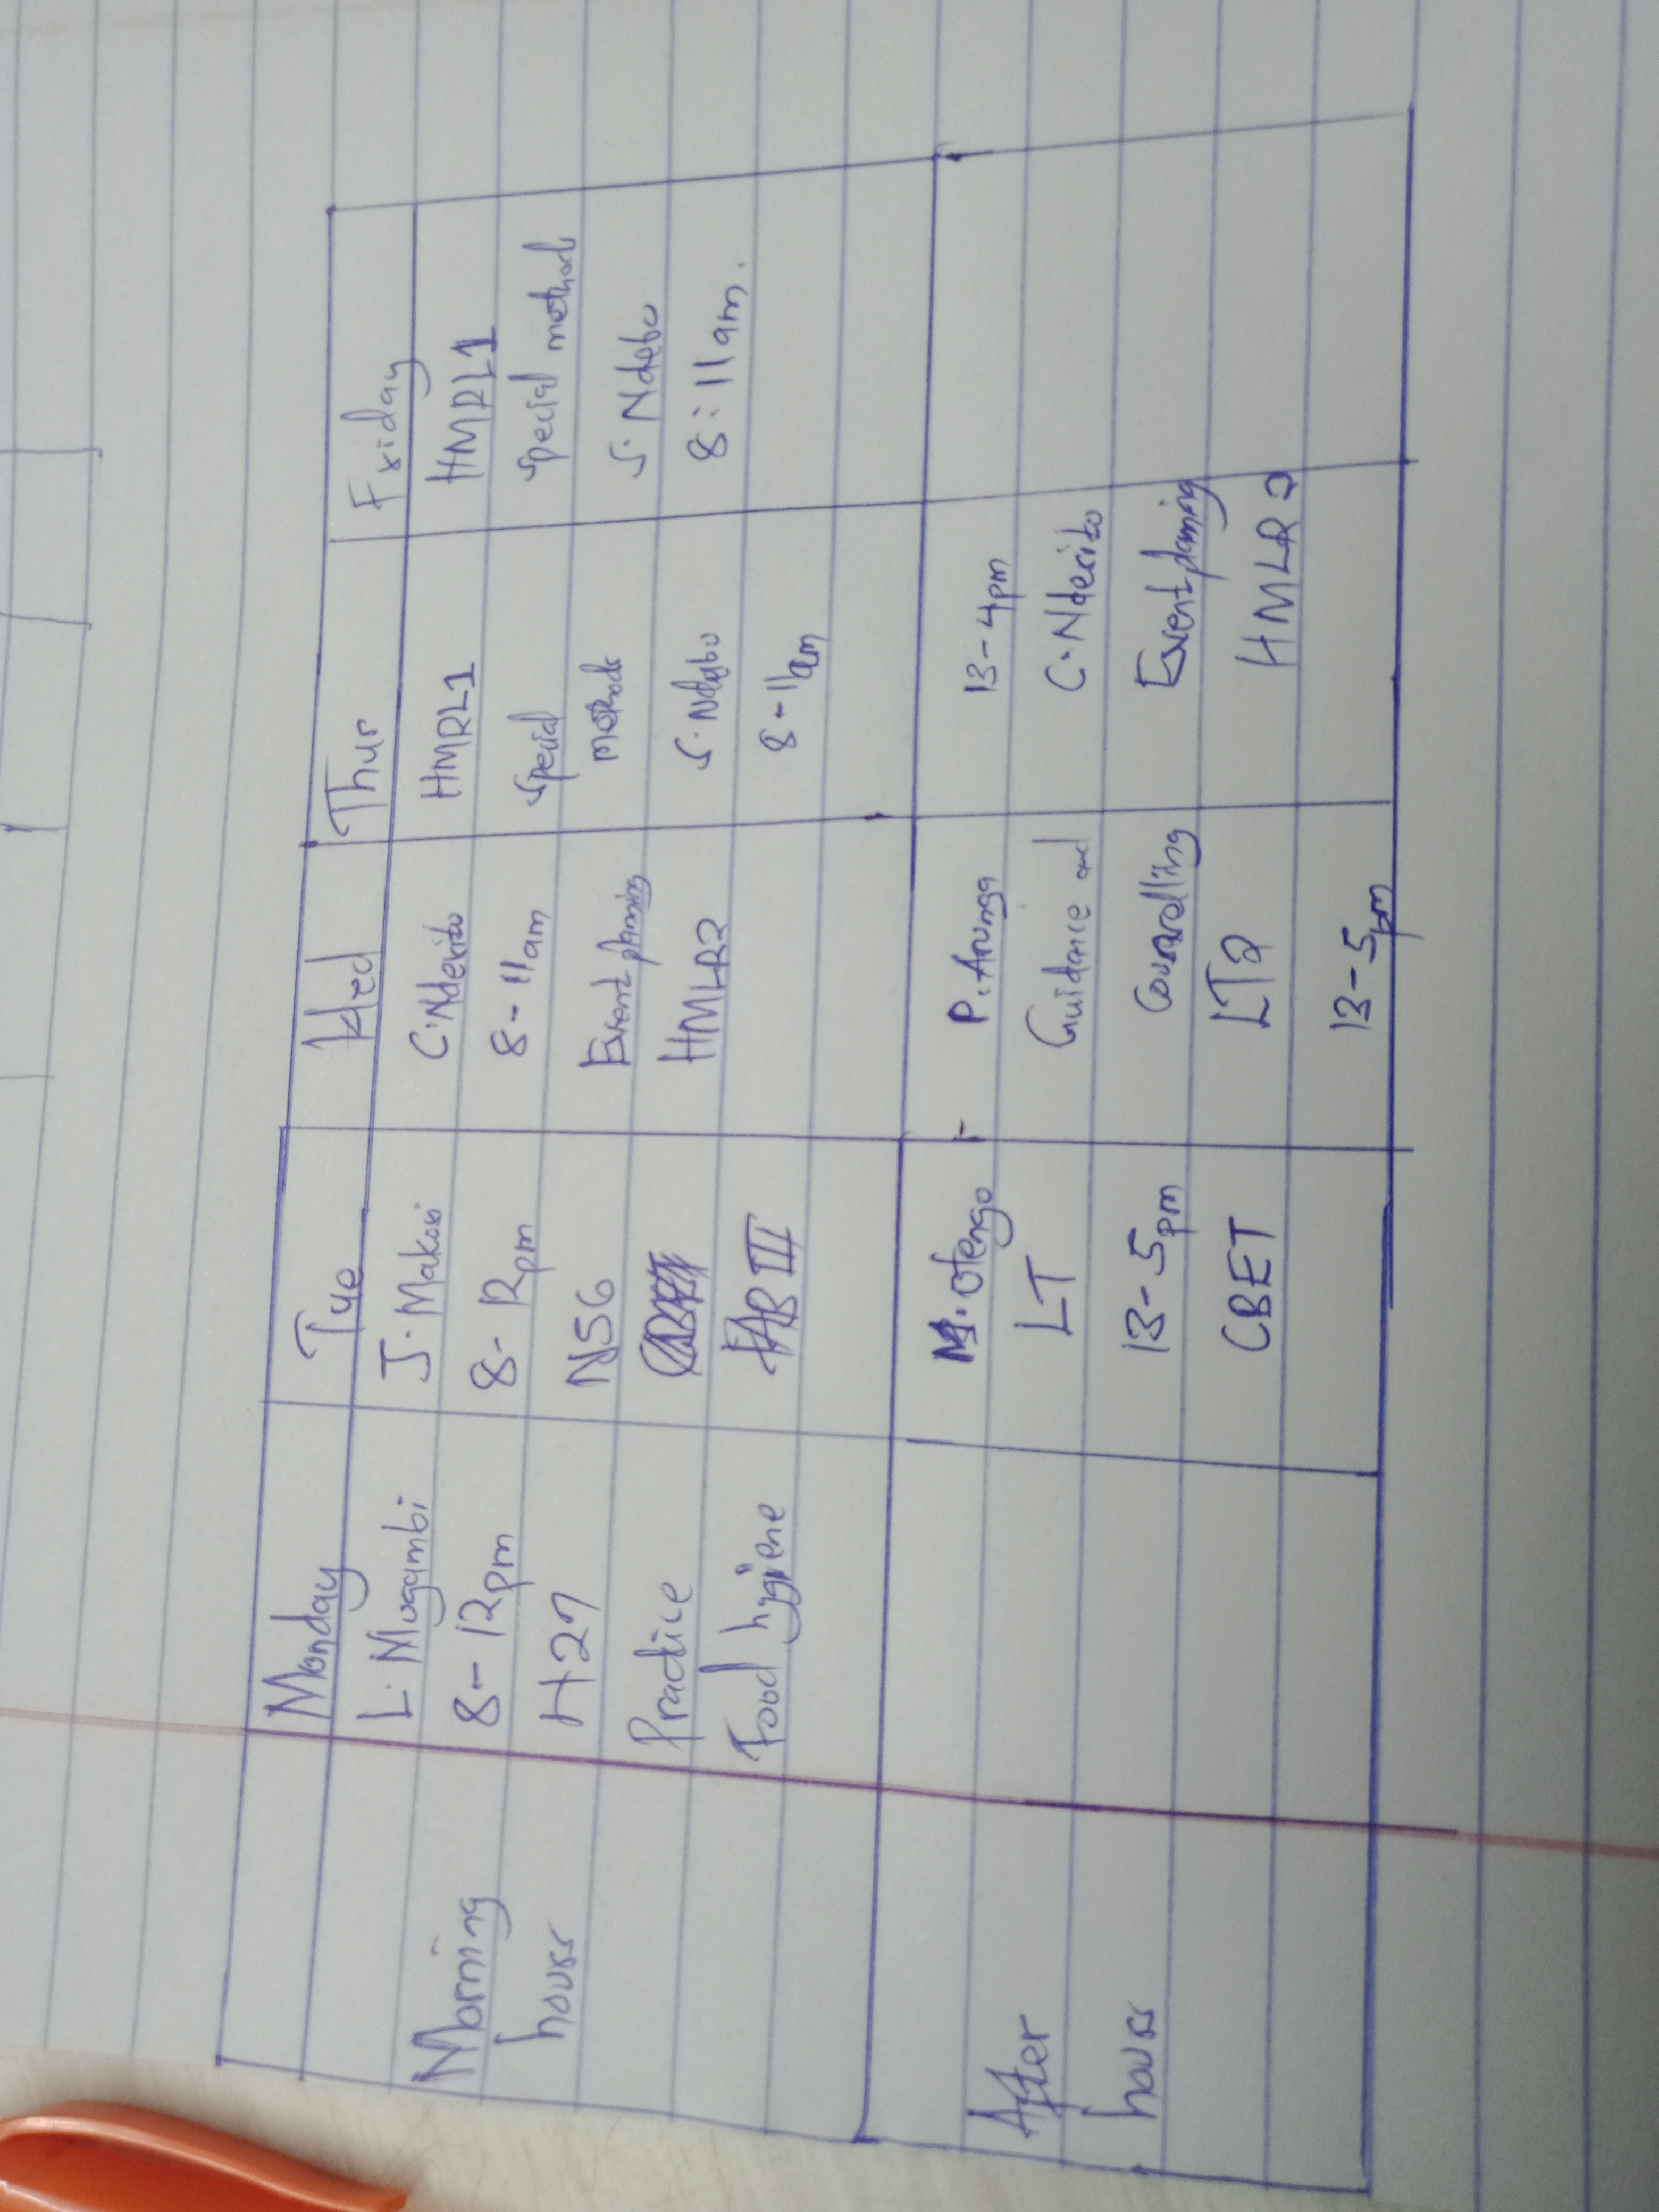 Monday Tue Wed Thur Friday
Morning
hours
L. Mugambi
8-12pm
H27
Practice
Food hygiene
J. Makori
8-12pm
NSG
FAB III
C. Nderitu
8-11am
Event planning
HMLR2
HMRL1
Special
methods
S. Ndebu
8-11am
HMRL1
Special method
S. Ndebu
8:11am.
After
hours
M. Otengo
LT
13-5pm
CBET
P. Arunga
Guidance and
Counselling
LT2
13-5pm
13-4pm
C. Nderitu
Event planning
HMLR2